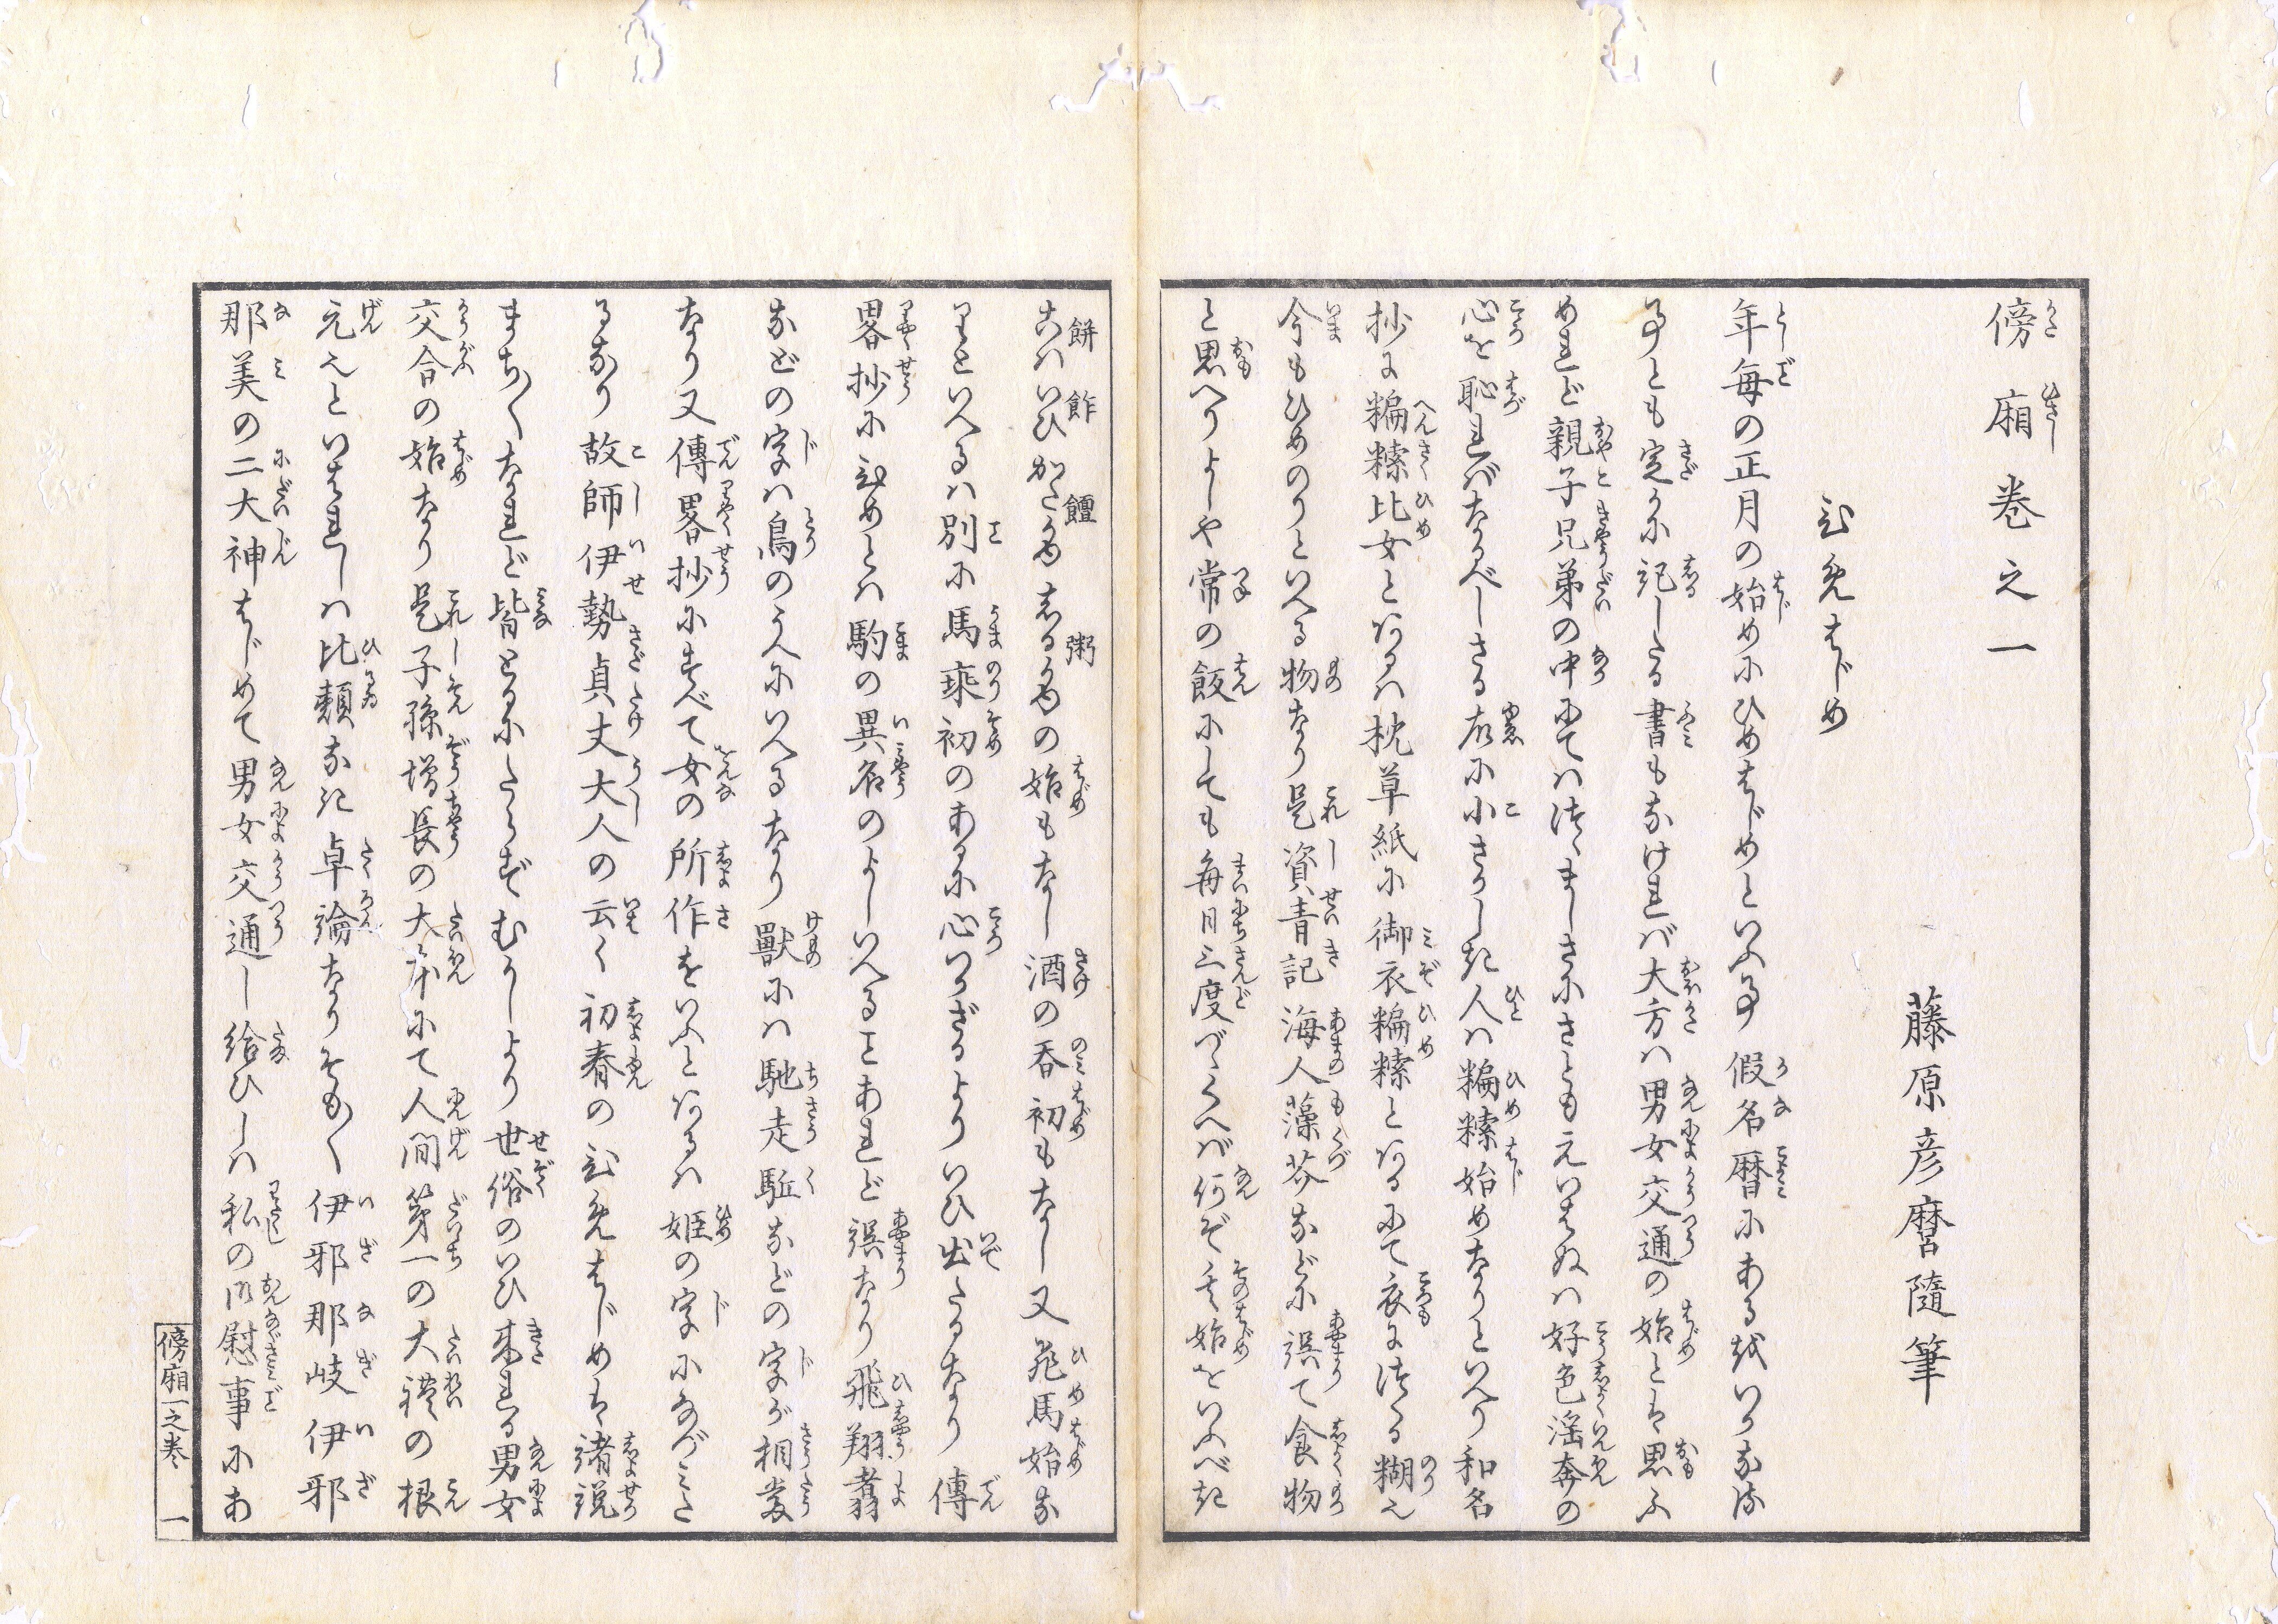 傍廂巻之一
藤原彦麿随筆
ひめはじめ
年毎の正月の始めにひめはじめといふ事假名暦にあるをいかなる
事とも定かに記したる書もなければ大方は男女交通の始とは思ふ
めれど親子兄弟の中にてはつゝましさにさともえいはぬは好色淫奔の
心を恥ればなるべしさる故に小さかしき人は糄𥻨始めなりといへり和名
抄に糄𥻨比女とあるは枕草紙に御衣糄𥻨とある にて衣につくる糊也
今もひめのりといへる物なり是し資青記海人藻芥などに誤て食物
と思へりよしや常の飯にしても毎日三度づゝくへば何ぞ其始をいふべき
餅飵饘粥
こはいひかたかゆしるかゆの始もなし酒の呑初もなし又飛馬始な
りといへるは別に馬乗初のあるに心づかざるよりいひ出たるなり傳
畧抄にひめとは駒の異名のよしいへることあれど誤なり飛翔翥
などの字は鳥のうへにいへるなり獣には馳走駈などの字が相當
なり又傳畧抄にすべて女の所作をいふとあるは姫の字になづみた
るなり故師伊勢貞丈大人の云く初春のひめはじめは諸説
まち〱なれど皆とるにたらずむかしより世俗のいひ来れる男女
交合の始なり是し子孫増長の大本にて人間第一の大禮の根
元也といはれしは比類なき卓論なりそも〱伊邪那岐伊邪
那美の二大神はじめて男女交通し給ひしは私の御慰事にあ
傍廂一之巻 一